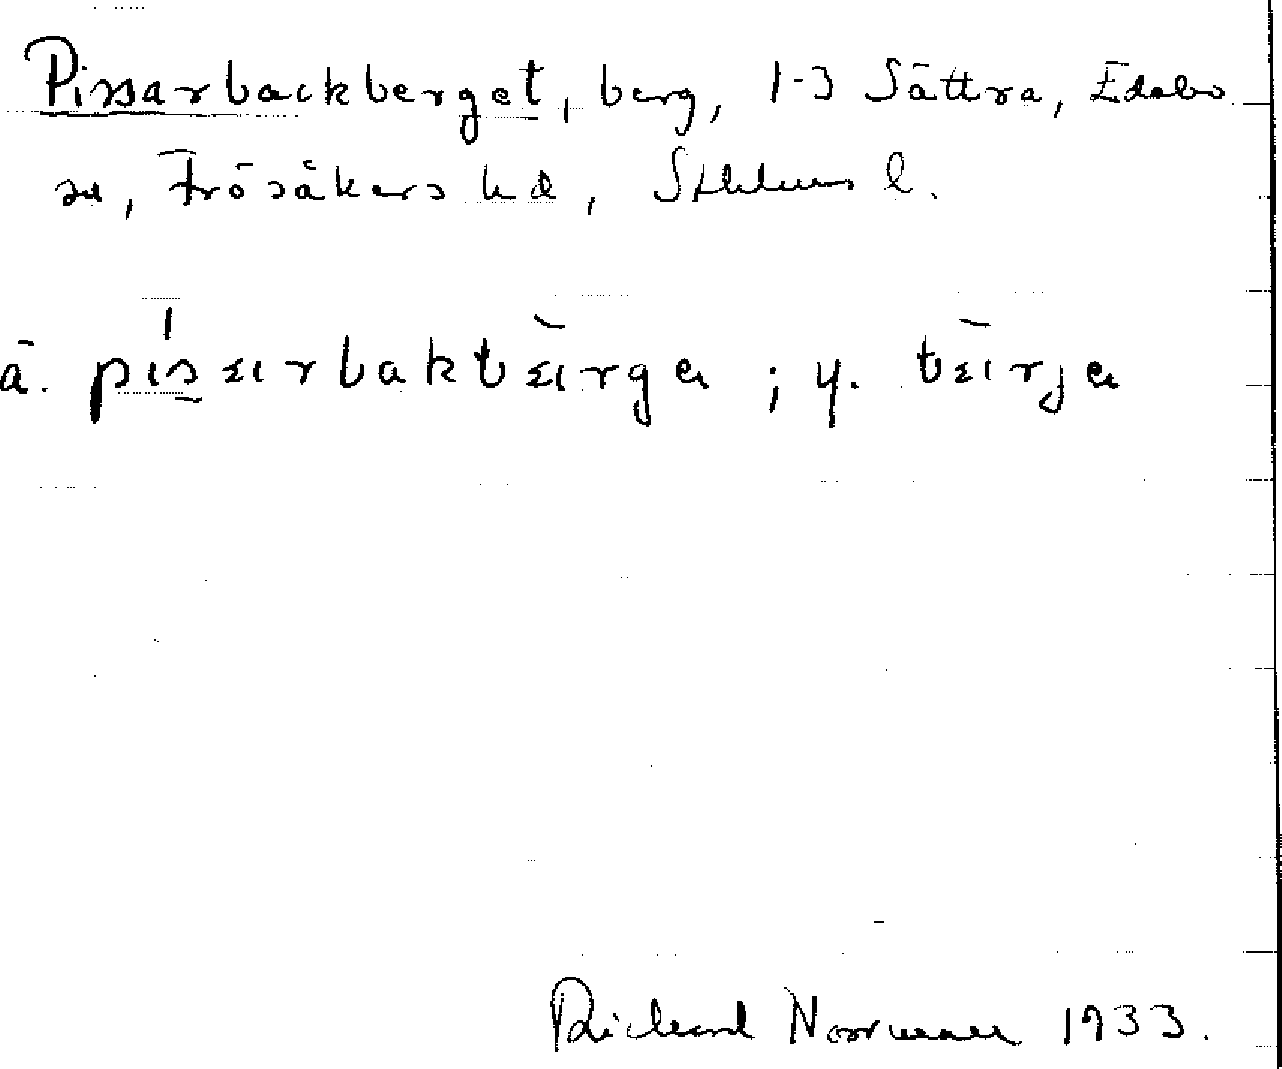 Pissarbackberget, berg, 1-3 Sättra, Edebo
sn, Frösåkers hd, Sthlms l.
ä. pisærbakbærga ; y. bærja
Richard Norrman 1933.